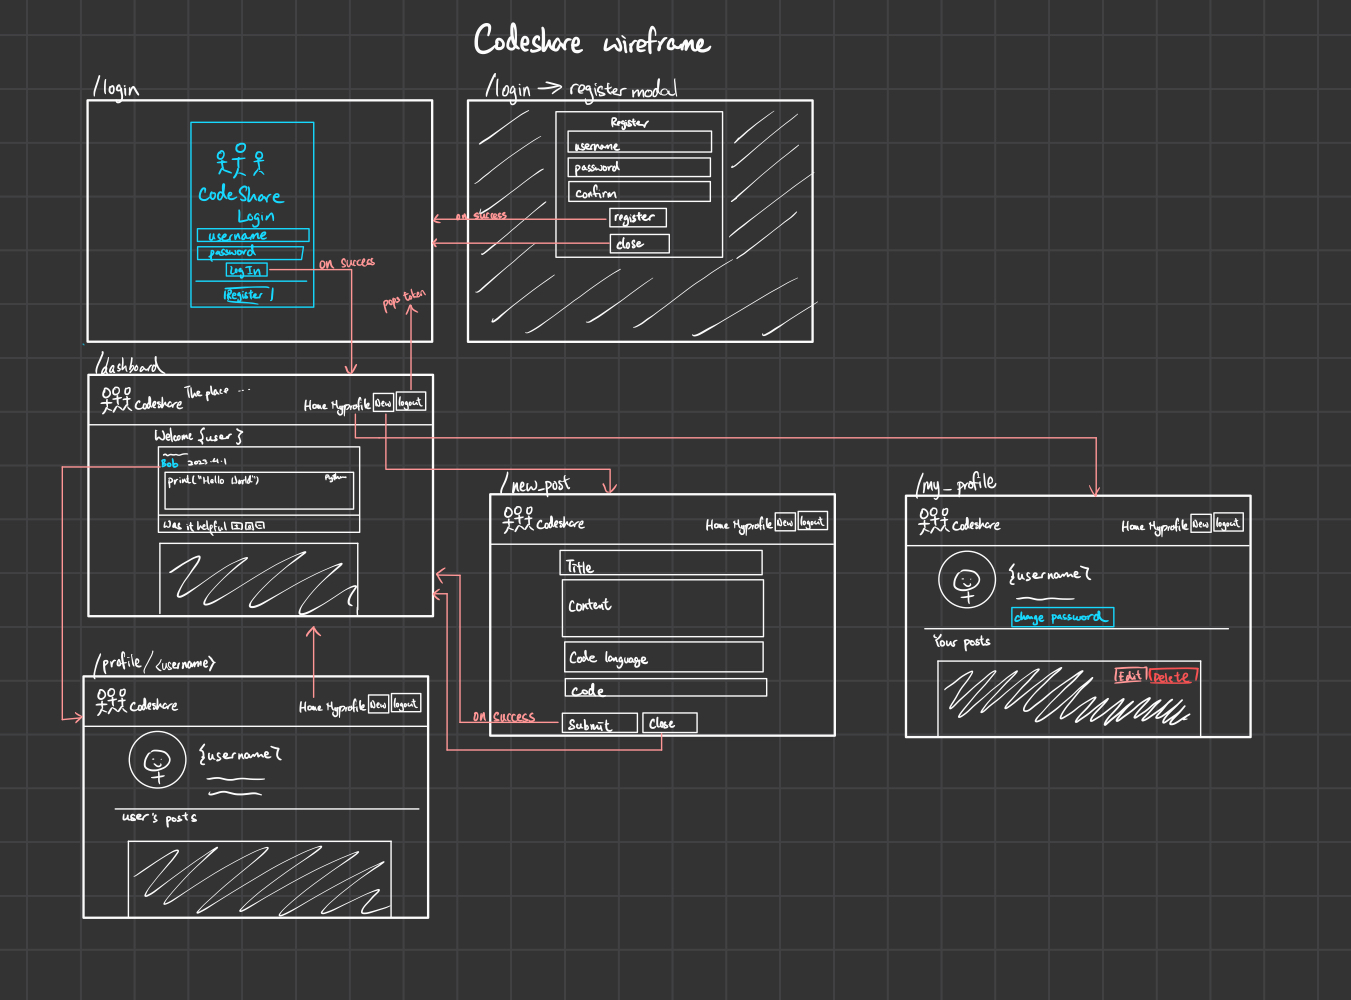 Codeshare wireframe
/login
CodeShare
Login
username
password
Log In
Register
on success
/login → register modal
Register
username
password
confirm
register
close
on success
pops token
/dashboard
Codeshare
The place ...
Home Myprofile New logout
Welcome {user}
Bob 2023.4.1
print("Hello World")
Python
Was it helpful
/new_post
Codeshare
Home Myprofile New logout
Title
Content
Code language
code
Submit
Close
on success
/my_profile
Codeshare
Home Myprofile New logout
{username}
change password
Your posts
Edit
Delete
/profile/<username>
Codeshare
Home Myprofile New logout
{username}
user's posts